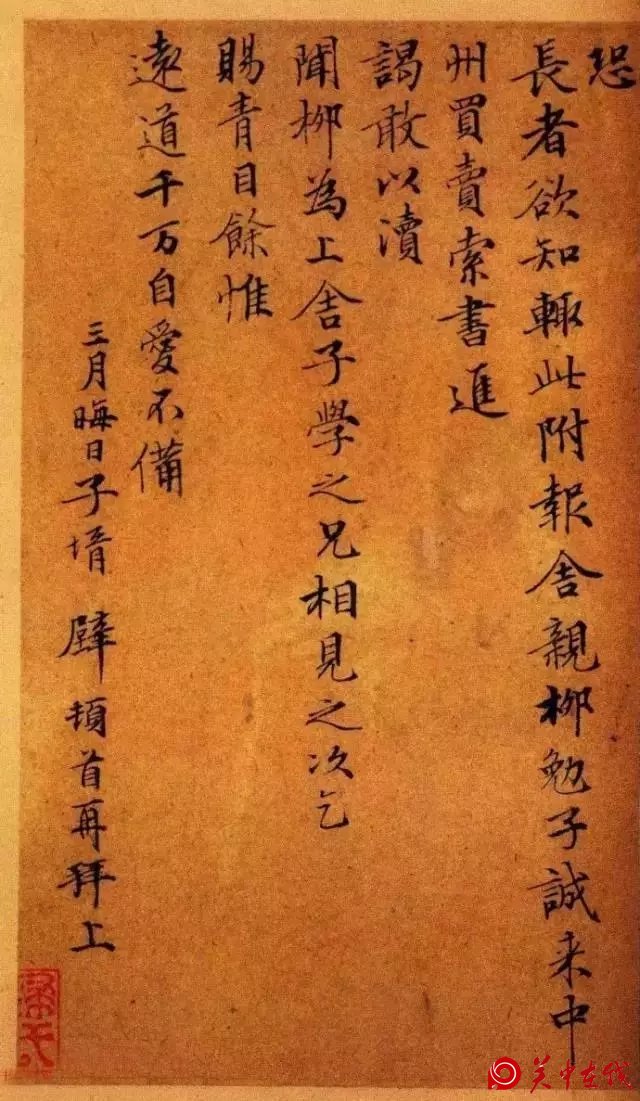 恐
長者欲知輙此附報舍親柳勉子誠来中
州買賣索書進
謁敢以瀆
聞柳為上舍子學之兄相見之次乞
賜青目餘惟
遠道千万自愛不備
三月晦日子壻 頓首再拜上
关中在线